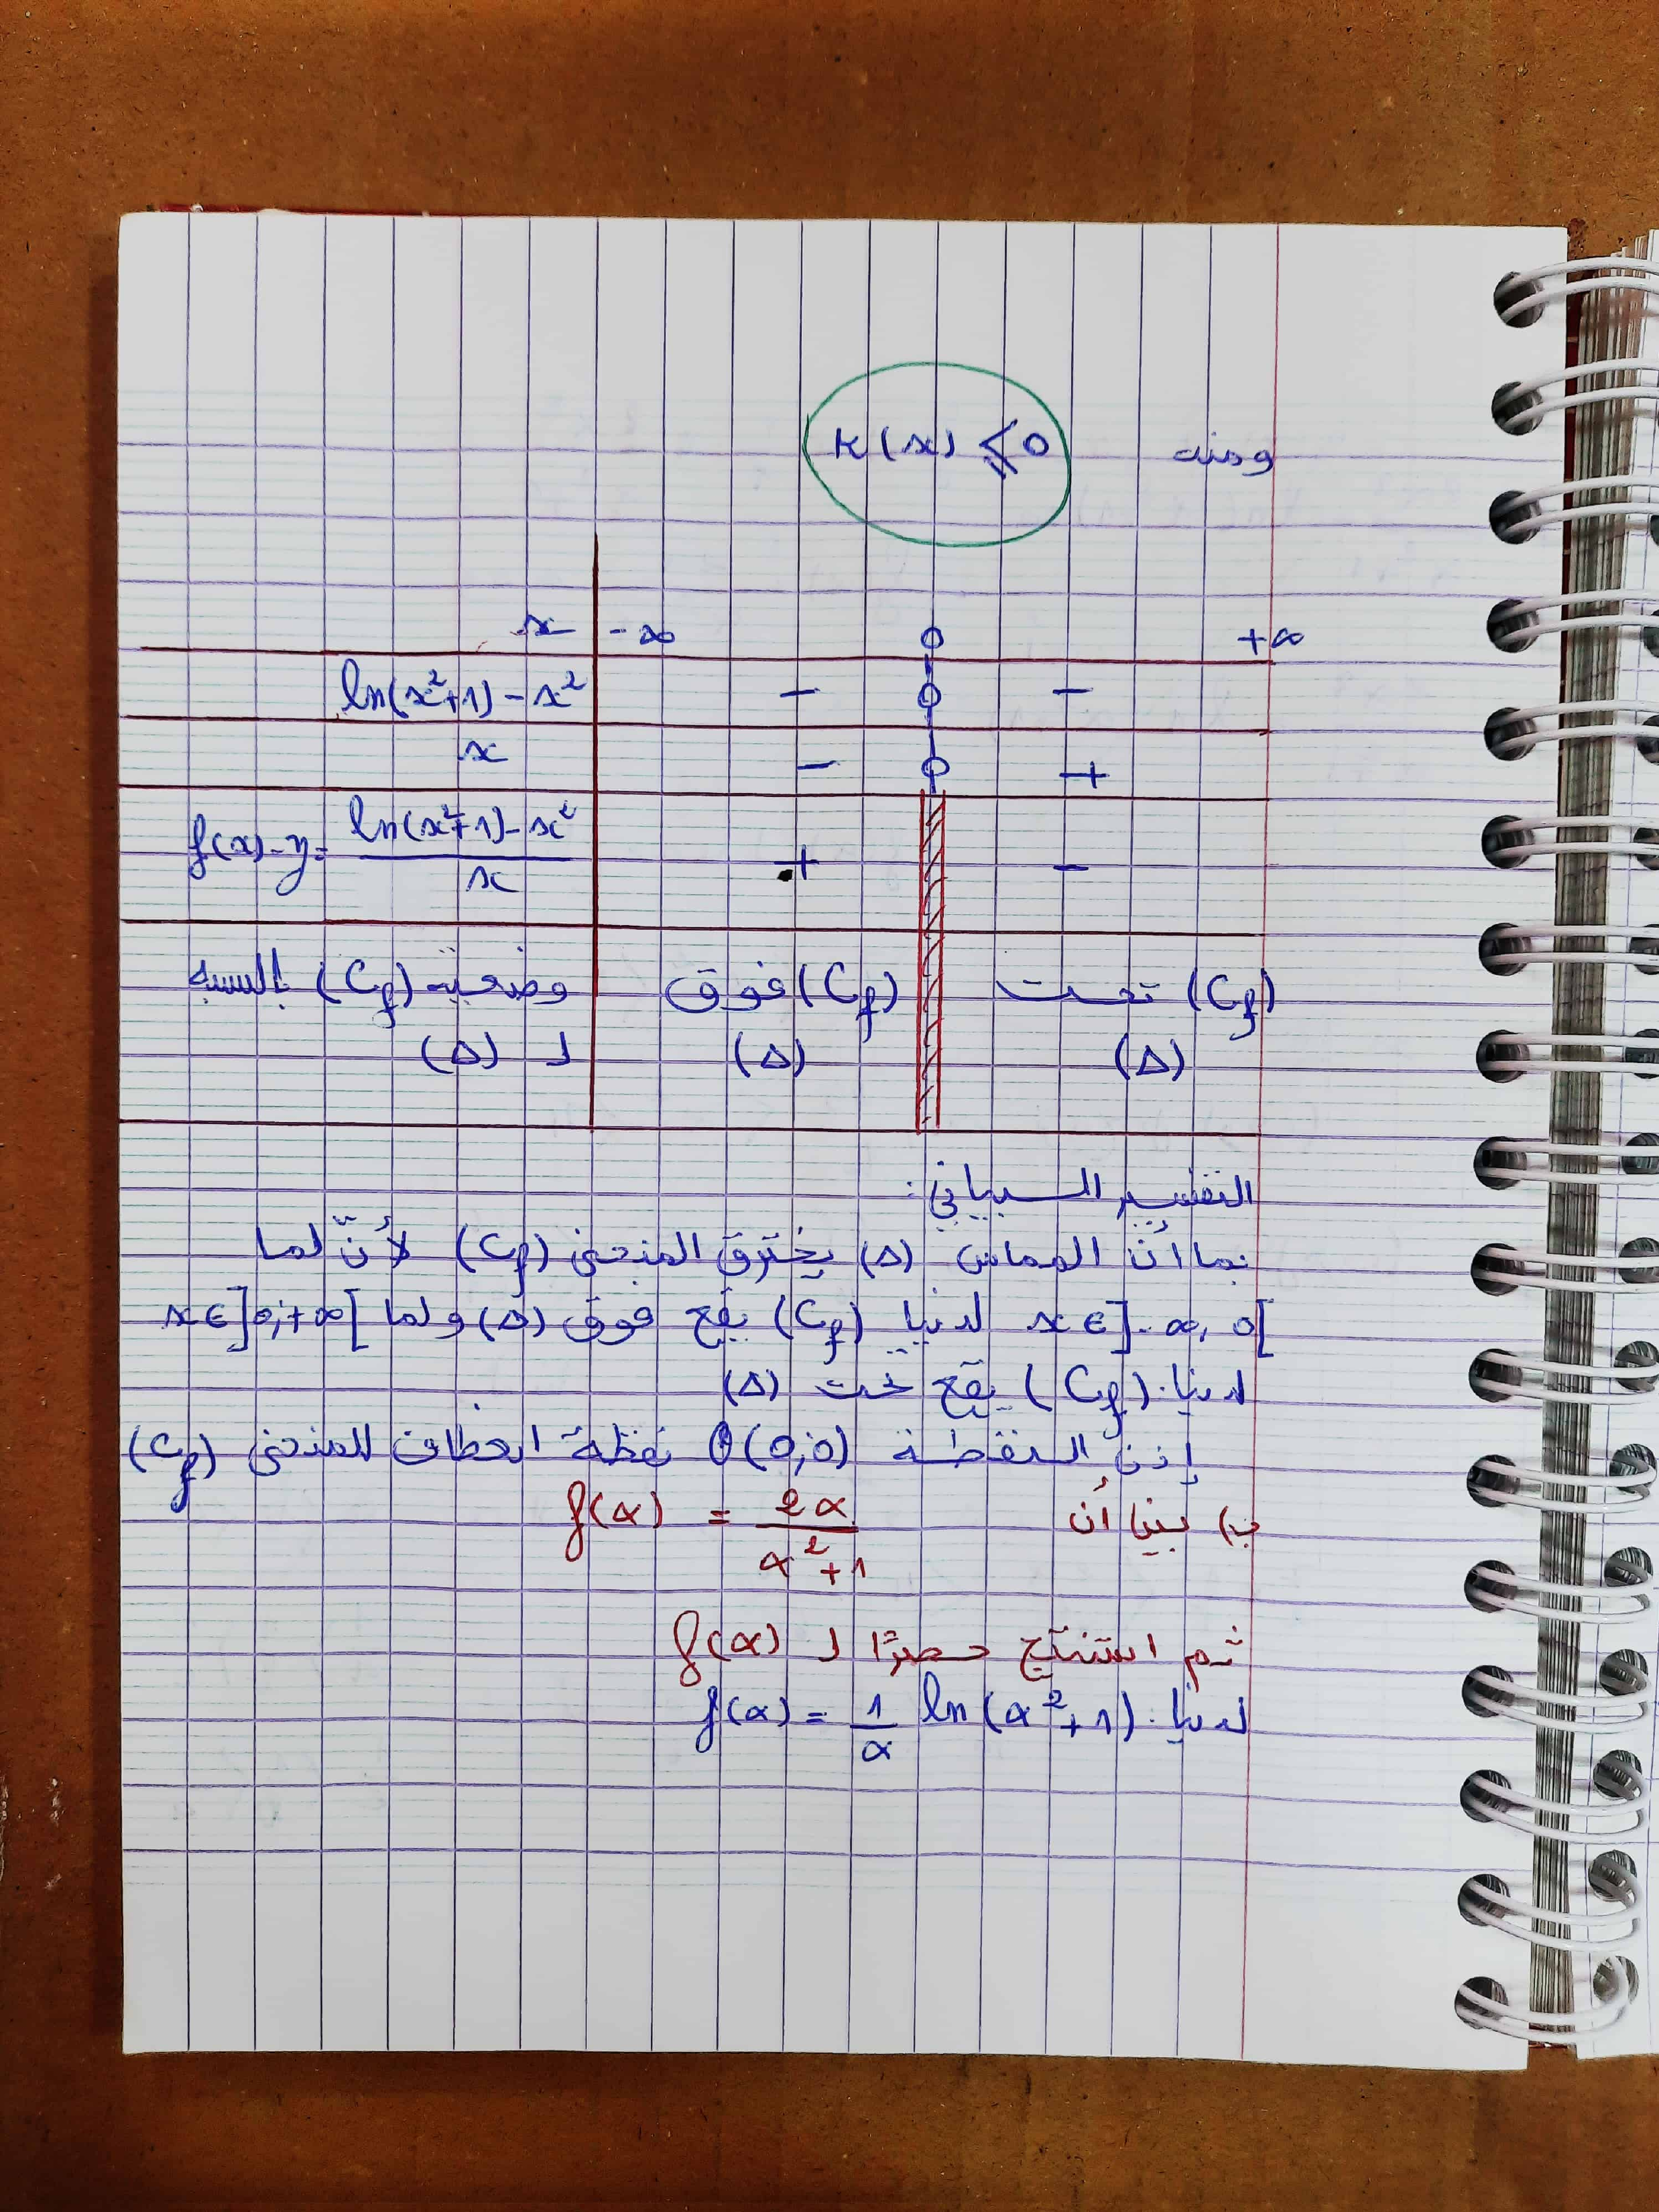 ومنه k(x) ⩽ 0
x -∞ 0 +∞
ln(x²+1)-x² - 0 -
x - 0 +
f(x)-y = (ln(x²+1)-x²)/x + -
وضعية (Cf) بالنسبة (Cf) فوق (Cf) تحت
لـ (Δ) (Δ) (Δ)
التفسير البياني:
بما أن المماس (Δ) يخترق المنحنى (Cf) لأنّ لما
x∈]-∞,0[ لدينا (Cf) يقع فوق (Δ) ولما x∈]0;+∞[
لدينا (Cf) يقع تحت (Δ)
إذن النقطة O(0;0) نقطة انعطاف للمنحنى (Cf)
ب) بين أن f(α) = 2α/(α²+1)
ثم استنتج حصرًا لـ f(α)
لدينا f(α) = 1/α ln(α²+1)